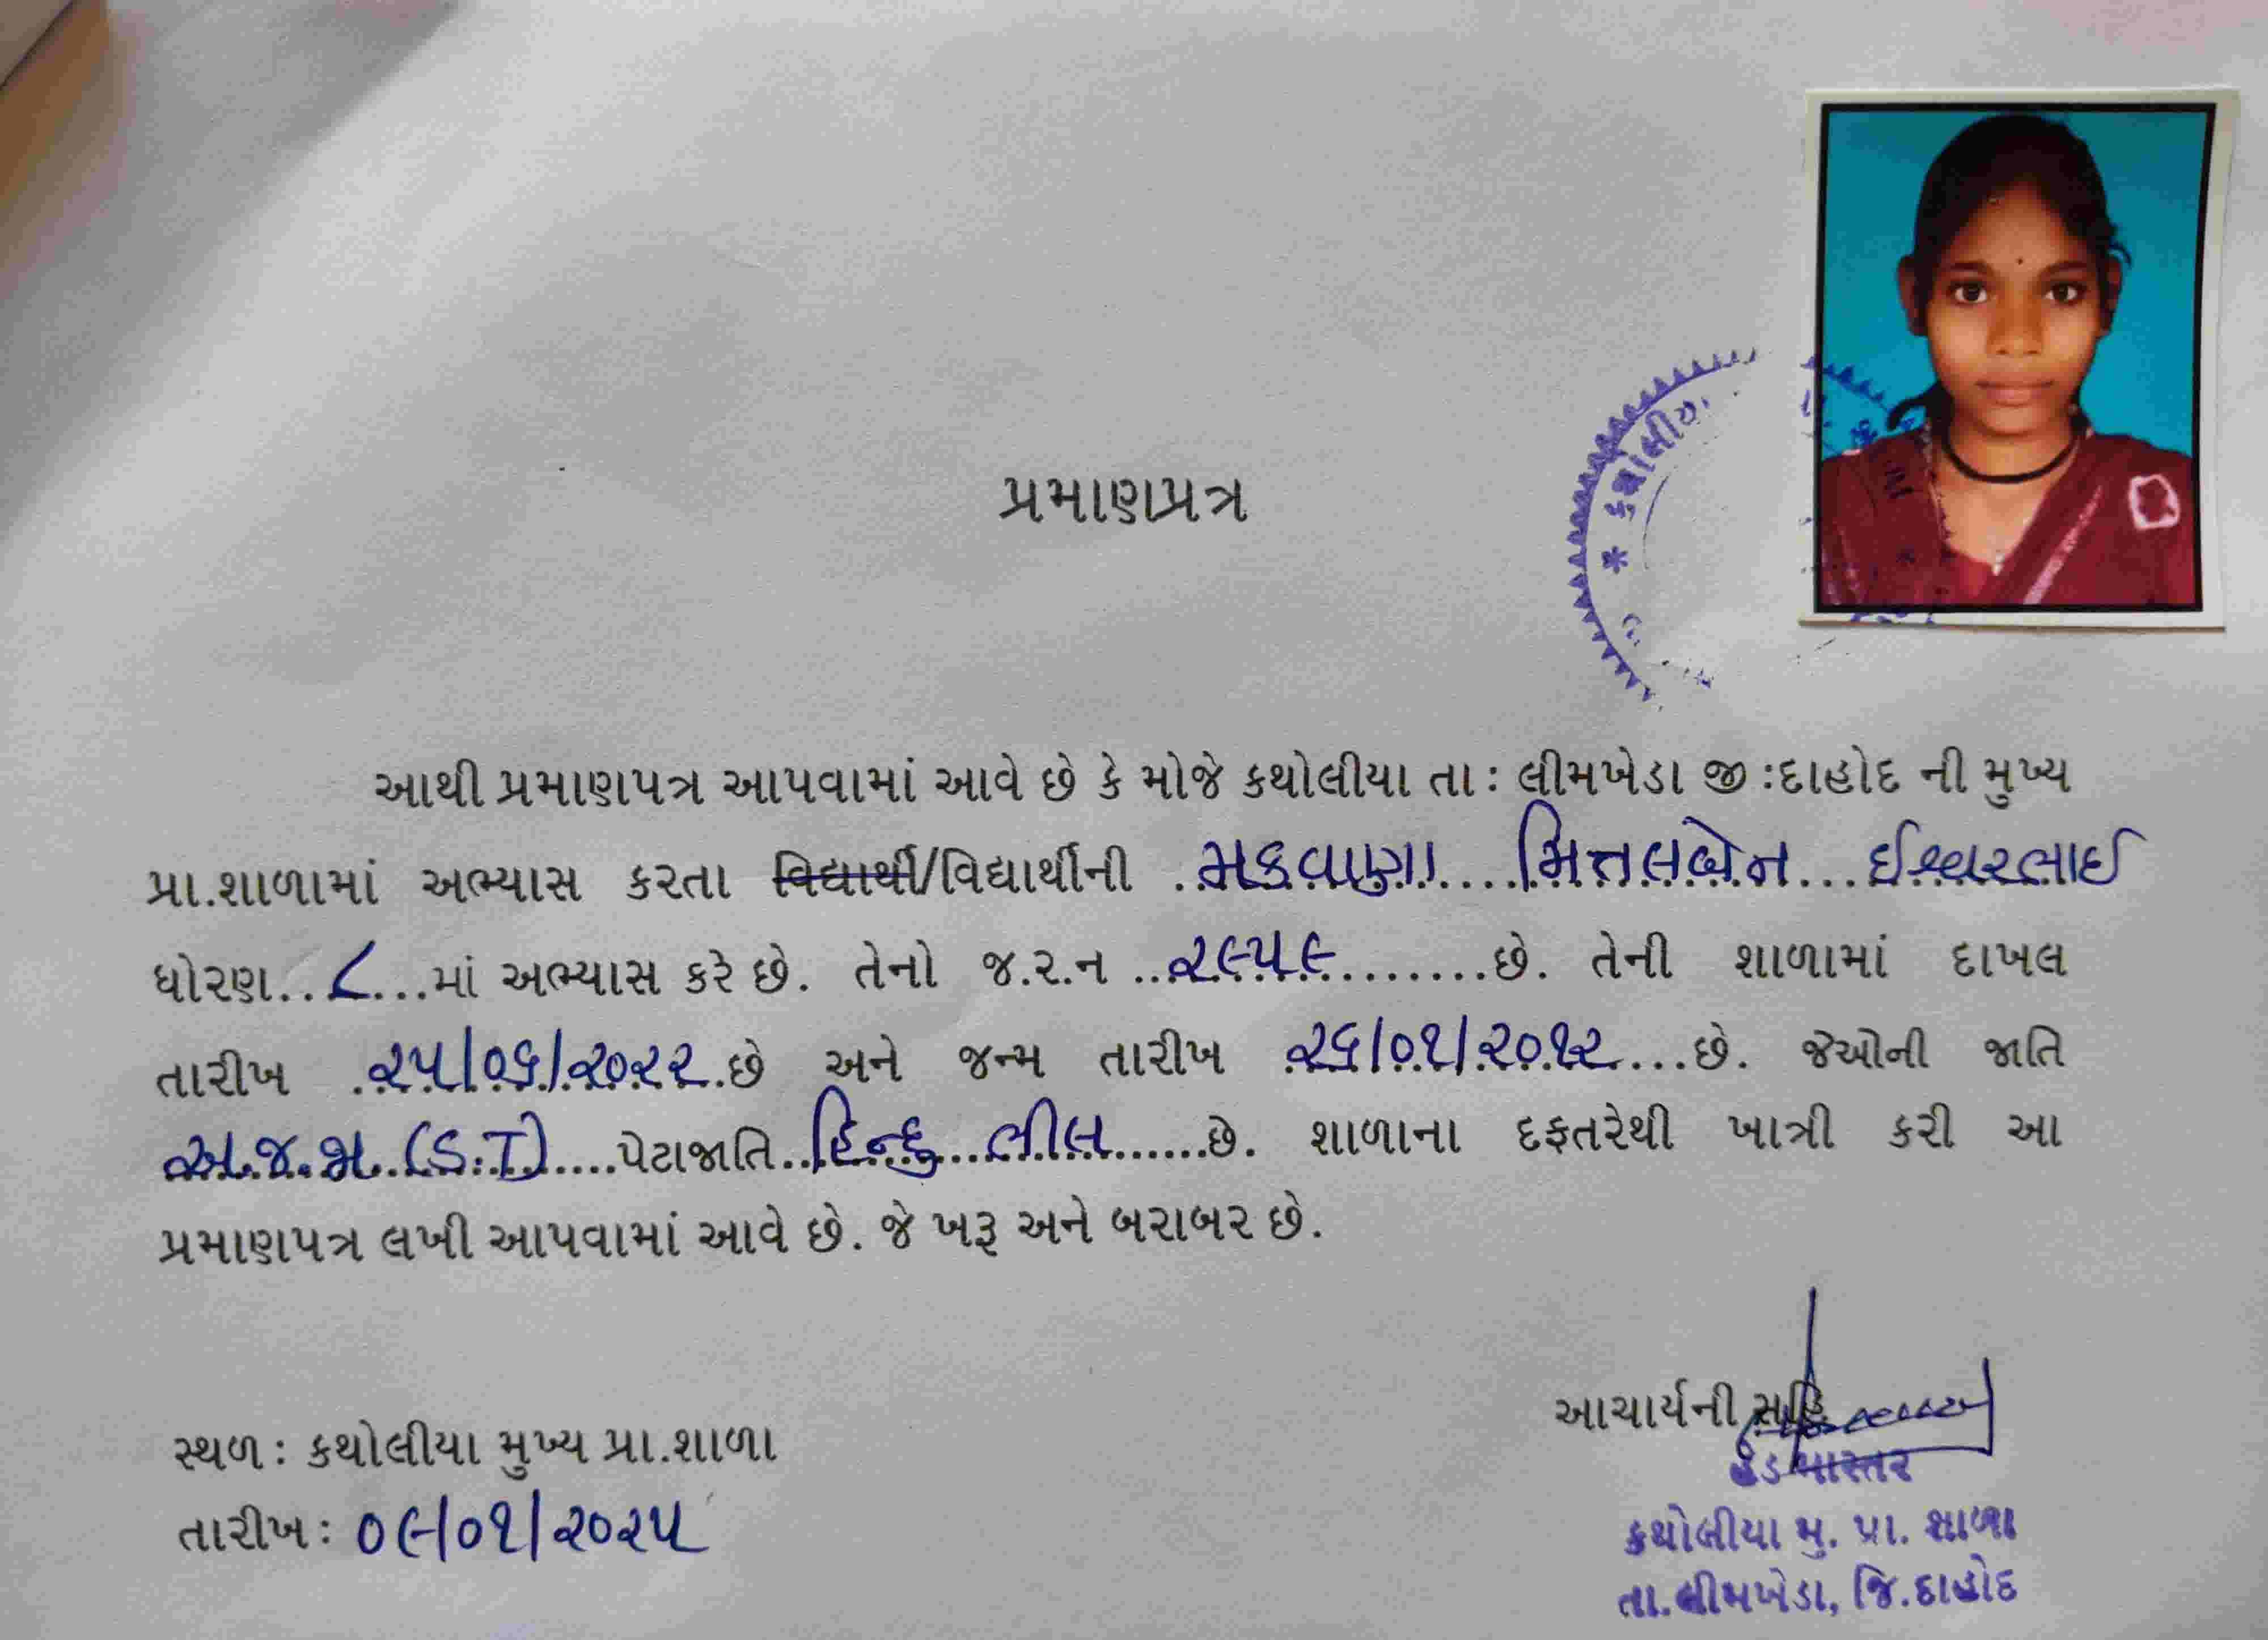 પ્રમાણપ્રત્ર
કથોલીયા
આથી પ્રમાણપત્ર આપવામાં આવે છે કે મોજે કથોલીયા તા: લીમખેડા જી :દાહોદ ની મુખ્ય
પ્રા.શાળામાં અભ્યાસ કરતા વિદ્યાર્થી/વિદ્યાર્થીની ..મકવાણા....મિત્તલબેન...ઈશ્વરભાઈ
ધોરણ...૮...માં અભ્યાસ કરે છે. તેનો જ.ર.ન ..૨૯૫૯........છે. તેની શાળામાં દાખલ
તારીખ .૨૫/૦૬/૨૦૨૨.છે અને જન્મ તારીખ ૨૬/૦૧/૨૦૧૨...છે. જેઓની જાતિ
અ.જ.જા.(S.T)....પેટાજાતિ..હિન્દુ...ભીલ......છે. શાળાના દફતરેથી ખાત્રી કરી આ
પ્રમાણપત્ર લખી આપવામાં આવે છે. જે ખરૂ અને બરાબર છે.
આચાર્યની સહિ
હેડ માસ્તર
સ્થળ: કથોલીયા મુખ્ય પ્રા.શાળા
તારીખ: ૦૯/૦૧/૨૦૨૫
કથોલીયા મુ. પ્રા. શાળા
તા.લીમખેડા, જિ.દાહોદ